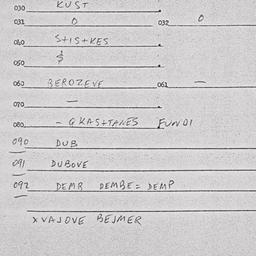 030 KUST
031 0 032 0
040 S+IS+KES
050
060 BEROZEVE 061 —
070 —
080 - GKAS+TANES FUNDI
090 DUB
091 DUBOVE
092 DEMB DEMBE = DEMP
XVAJOVE BEJMER